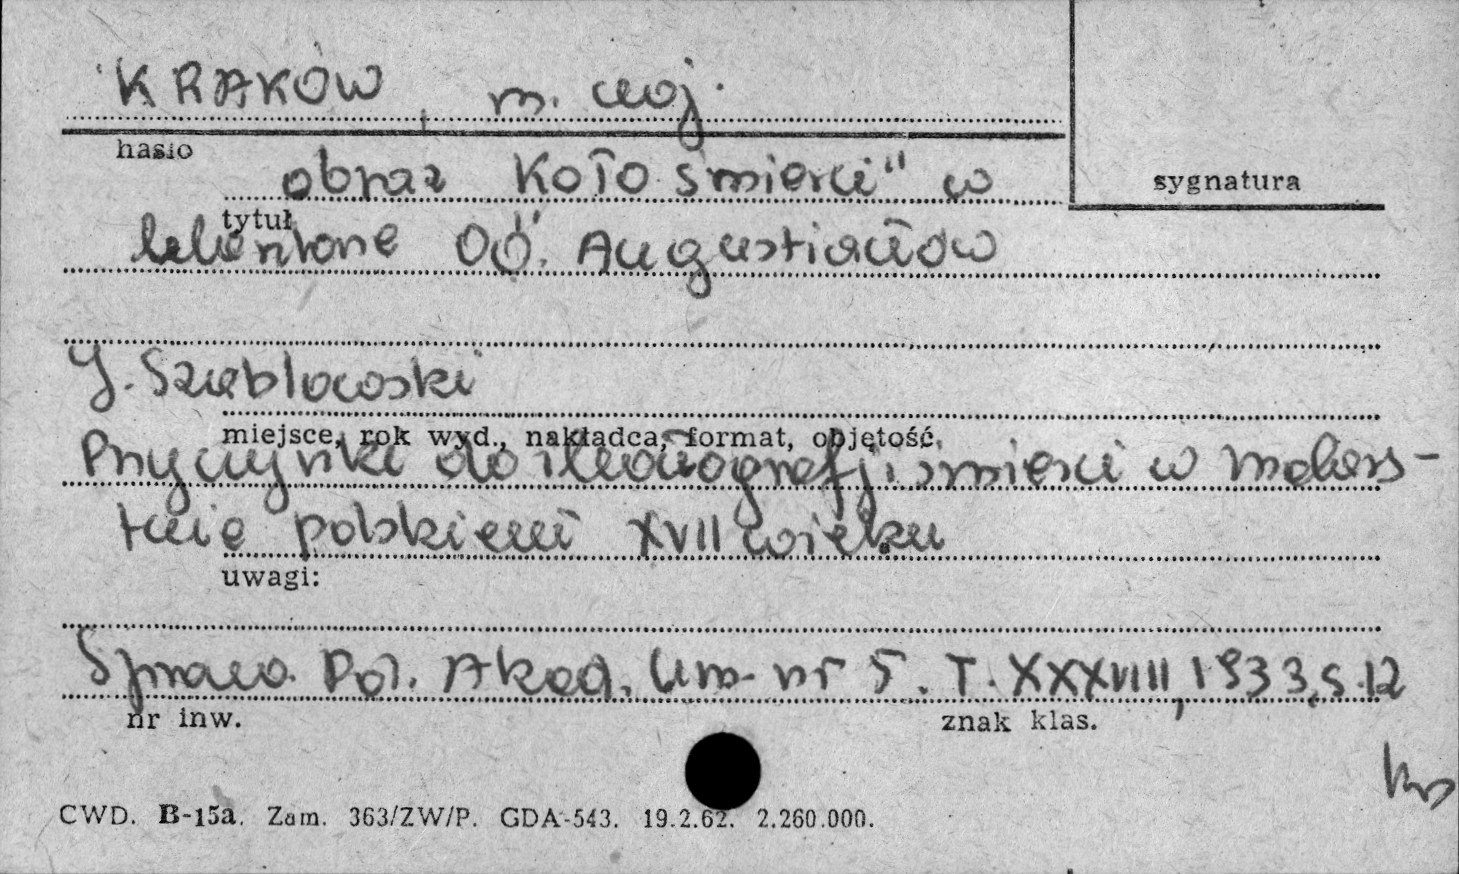 KRAKÓW, m. woj.
hasło
sygnatura
obraz Koło śmierci" w
tytuł
OO. Augustianów
J. Szabłowski
miejsce, rok wyd., nakładca, format, objętość,
Przyczynki do ikonografji śmierci w malars-
twie polskiem XVII wieku
uwagi:
Spraw. Pol. Akad. Um. nr 5. T. XXXVIII, 1933, s. 12
nr inw.
znak klas.
CWD. B-15a. Zam. 363/ZW/P. GDA-543. 19.2.62. 2.260.000.